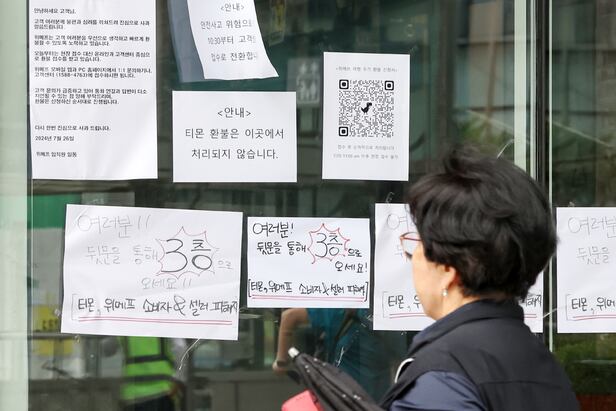 안녕하세요 고객님.
고객 여러분께 불편과 심려를 끼쳐드려 진심으로 사과
말씀드립니다.
고객 여러분의 불편을 우선으로 생각하고 빠르게
환불 할 수 있도록 노력하고 있습니다.
오늘부터는 현장 접수 대신 온라인과 고객센터 중심으
로 환불 접수를 받고 있습니다.
위메프 모바일 앱과 PC 홈페이지에서 1:1 문의하기,
고객센터 (1588-4763)에 접수하시면 됩니다.
고객 문의가 급격하게 늘고 있어 통화 연결과 답변이 다소
지연될 수 있는 점 양해 부탁드리며,
환불은 신청하신 순서대로 진행됩니다.
다시 한번 진심으로 사과 드립니다.
2024년 7월 26일
위메프 임직원 일동
<안내>
안전사고 위험으
10:30부터 고객
접수로 전환합니
<안내>
티몬 환불은 이곳에서
처리되지 않습니다.
여러분!!
뒷문을 통해 3층으로
오세요!
[티몬, 위메프 소비자 & 셀러 피해자
여러분!
뒷문을 통해 3층으로
오세요!
[티몬, 위메프 소비자 & 셀러 피해자]
여러
뒷문을
[티몬,
여러분!
뒷문을
[티몬, 위메프